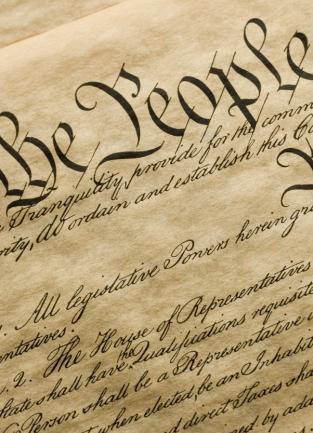 the People
Tranquility, provide for the comm
rity, do ordain and establish this Co
All legislative Powers herein gr
ntatives.
2. The House of Representatives
State shall have the Qualifications requisite
Person shall be a Representative
when elected, be an Inhabit
and direct Taxes sha
ned by add